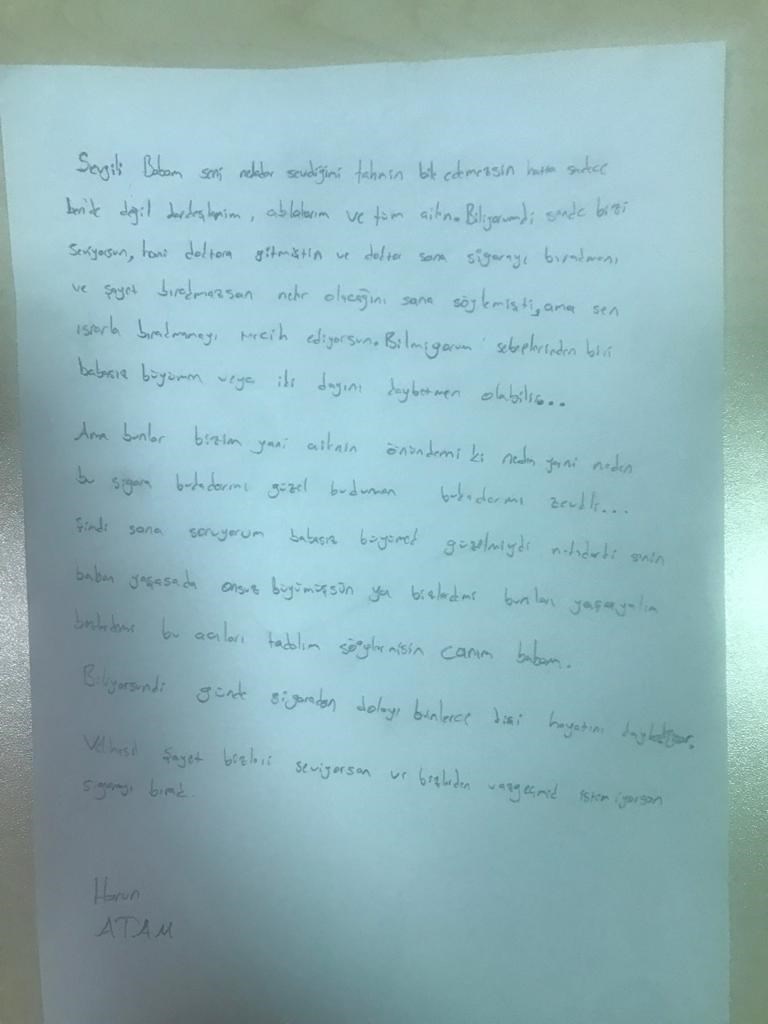 Sevgili Babam seni nekadar sevdiğimi tahmin bile edemezsin hatta sadece
bende değil kardeşlerim, ablalarım ve tüm ailen. Biliyorumki sende bizi
seviyorsun, hani doktora gitmiştin ve doktor sana sigarayı bırakmanı
ve şayet bırakmazsan neler olacağını sana söylemişti, ama sen
ısrarla bırakmamayı tercih ediyorsun. Bilmiyorum sebeplerinden biri
babasız büyümen veya iki dayını kaybetmen olabilir...
Ama bunlar bizim yani ailenin önündemi ki neden yani neden
bu sigara bukadarmı güzel bu duman bukadarmı zevkli...
Şimdi sana soruyorum babasız büyümek güzelmiydi nekadarki senin
baban yaşasada onsuz büyümüşsün ya bizlerdemi bunları yaşayalım
bizlerdemi bu acıları tadalım söylermisin canım babam.
Biliyorsunki günde sigaradan dolayı binlerce kişi hayatını kaybediyor.
Velhasıl şayet bizleri seviyorsan ve bizlerden vazgeçmek istemiyorsan
sigarayı bırak.
Harun
ATAM